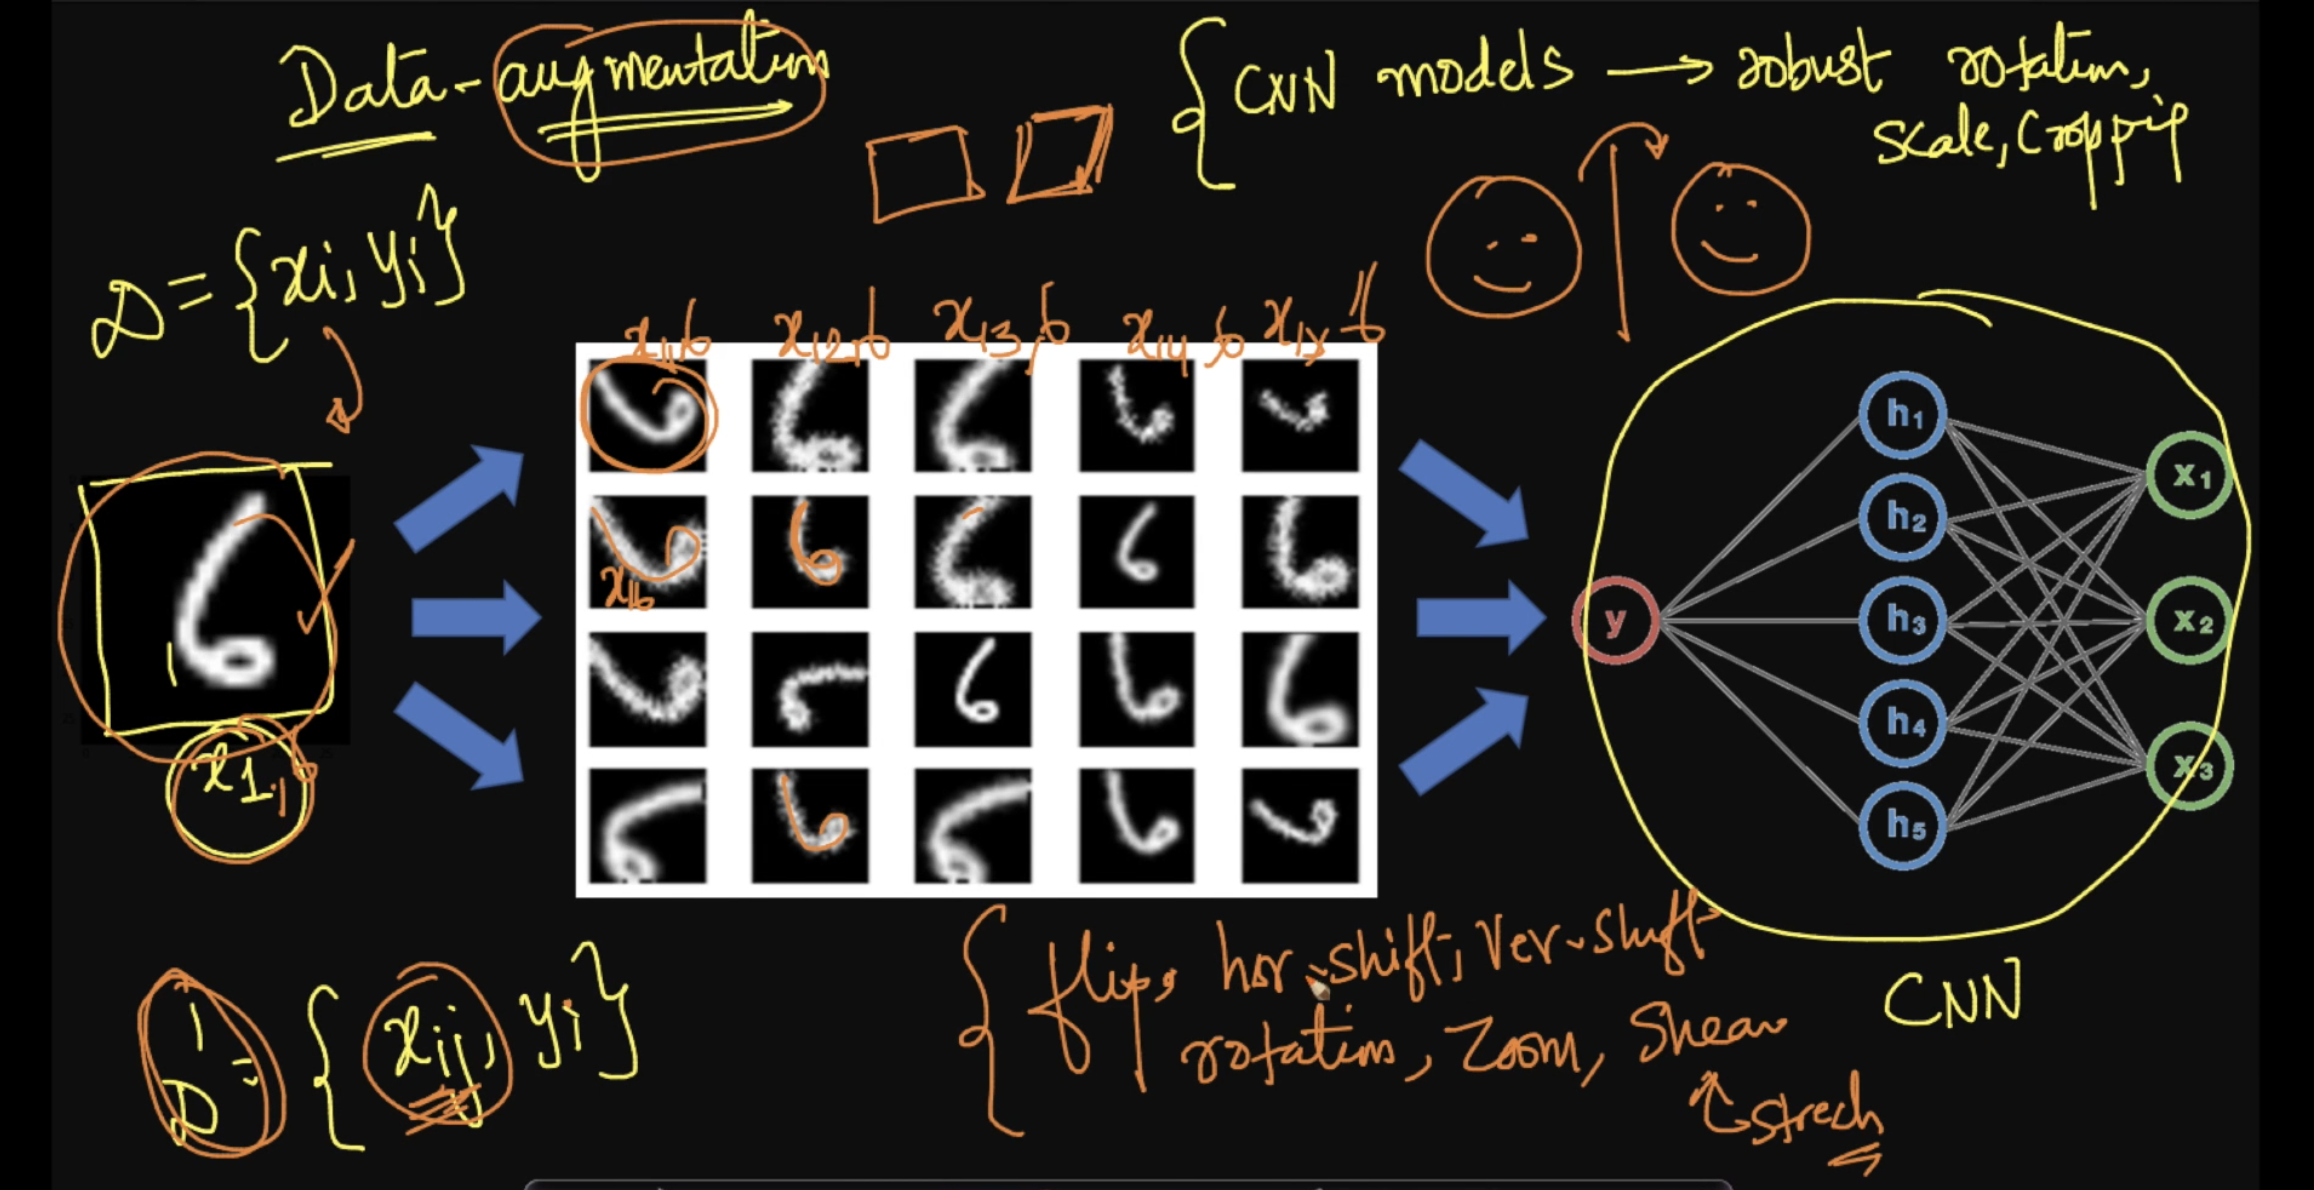 Data-augmentation
{ CNN models → robust rotation,
scale, cropping
D = {xi, yi}
x11,6 x12,6 x13,6 x14,6 x15,6
x16
x1
y
h1
h2
h3
h4
h5
x1
x2
x3
D' = {xij, yi}
{ flip, hor-shift, ver-shift
rotation, Zoom, Shear
strech
CNN